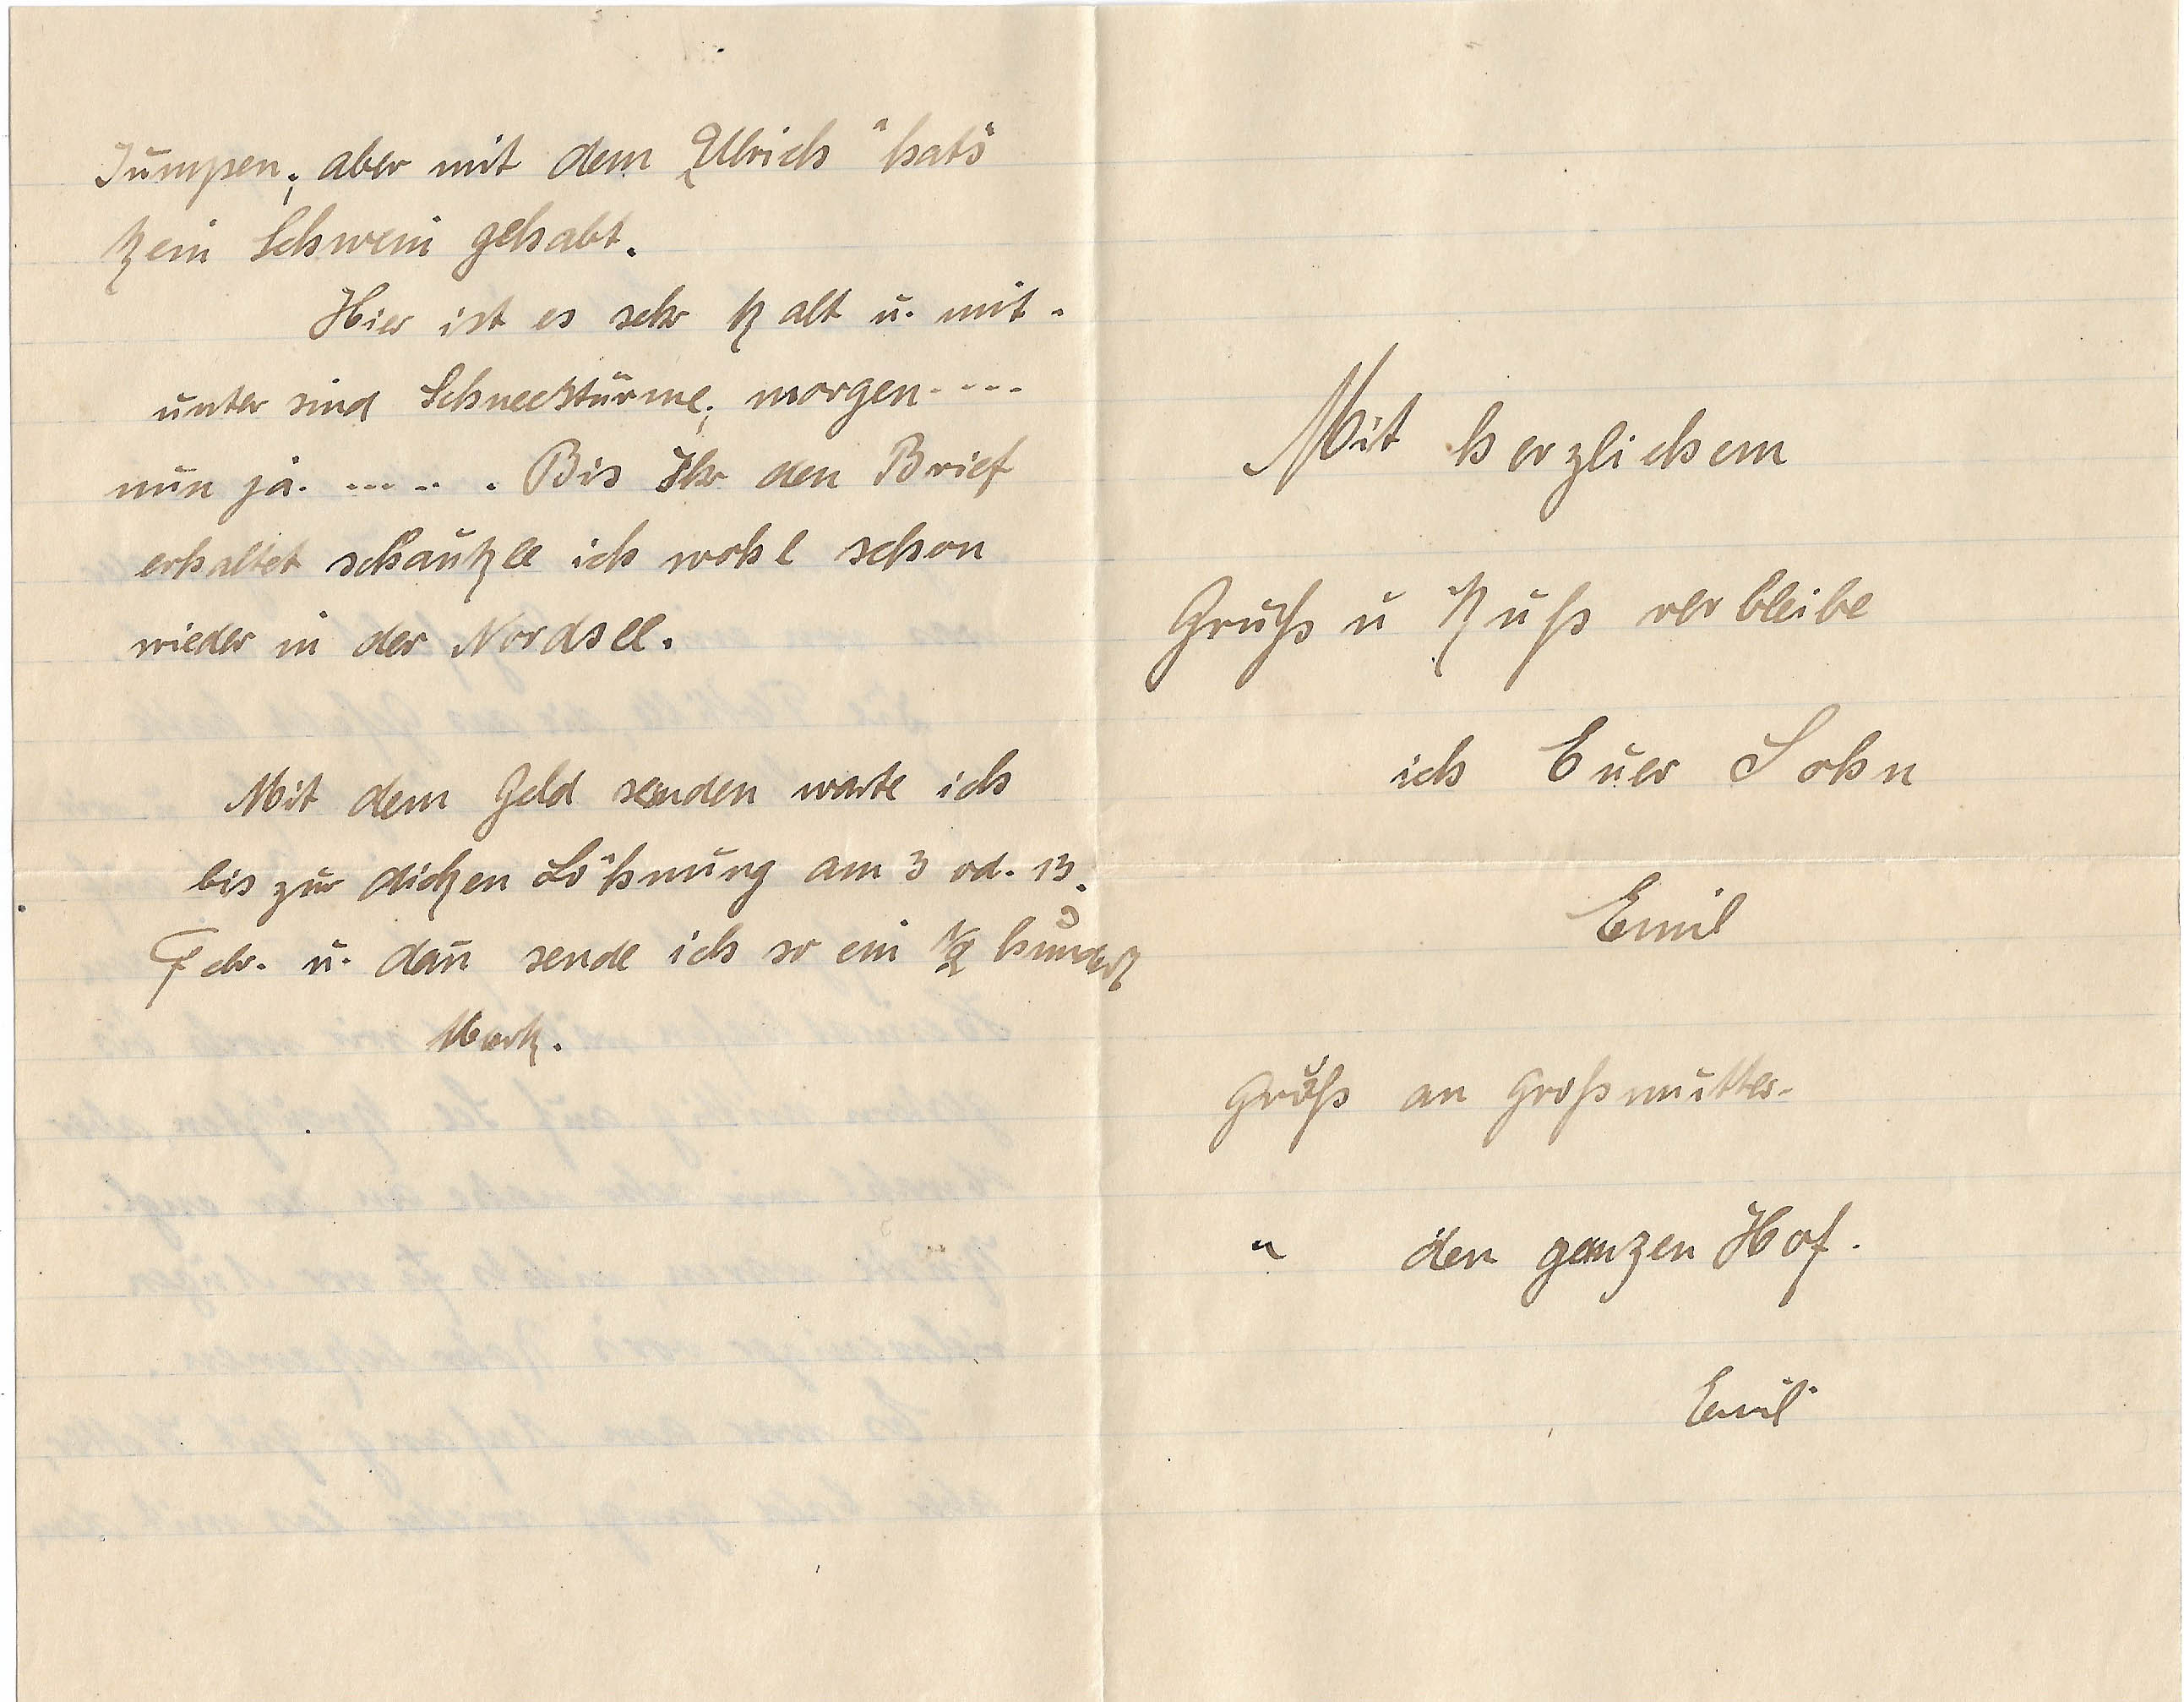 Jumpen; aber mit dem "Ulrich" hat's
kein Schwein gehabt.
Hier ist es sehr kalt u. mit-
unter sind Schneestürme; morgen- - - -
nun ja. ..... . Bis Ihr den Brief
erhaltet schaukle ich wohl schon
wieder in der Nordsee.
Mit dem Geld senden warte ich
bis zur dicken Löhnung am 3 od. 13.
Febr. u. dan̄ sende ich so ein ½ hundert
Mark.
Mit herzlichem
Gruß u Kuß verbleibe
ich Euer Sohn
Emil
Gruß an Großmutter.
" den ganzen Hof.
Emil